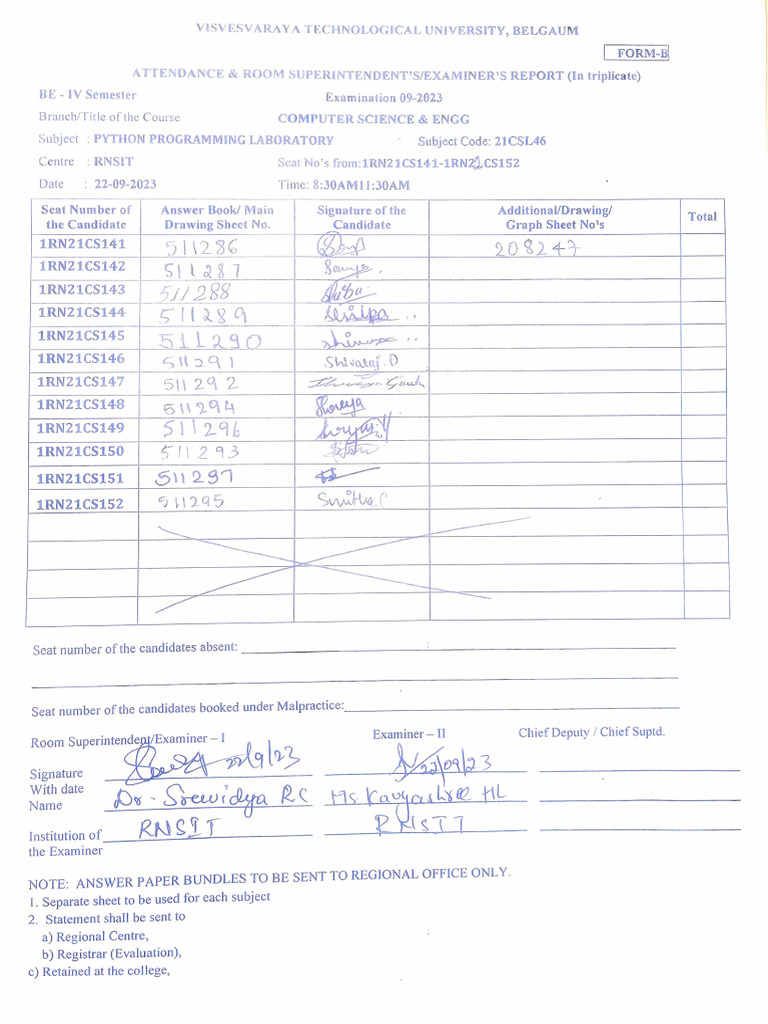 VISVESVARAYA TECHNOLOGICAL UNIVERSITY, BELGAUM
FORM-B
ATTENDANCE & ROOM SUPERINTENDENT'S/EXAMINER'S REPORT (In triplicate)
BE - IV Semester Examination 09-2023
Branch/Title of the Course COMPUTER SCIENCE & ENGG
Subject : PYTHON PROGRAMMING LABORATORY Subject Code: 21CSL46
Centre : RNSIT Seat No's from:1RN21CS141-1RN21CS152
Date : 22-09-2023 Time: 8:30AM11:30AM
Seat Number of the Candidate Answer Book/ Main Drawing Sheet No. Signature of the Candidate Additional/Drawing/ Graph Sheet No's Total
1RN21CS141 511286 208247
1RN21CS142 511287
1RN21CS143 511288
1RN21CS144 511289
1RN21CS145 511290
1RN21CS146 511291 Shivaraj.D
1RN21CS147 511292
1RN21CS148 511294 Shreya
1RN21CS149 511296
1RN21CS150 511293
1RN21CS151 511297
1RN21CS152 511295 Smitha.C
Seat number of the candidates absent:
Seat number of the candidates booked under Malpractice:
Room Superintendent/Examiner – I Examiner – II Chief Deputy / Chief Suptd.
Signature With date 22/9/23 22/09/23
Name Dr. Sreevidya RC Ms. Kavyashree HL
Institution of the Examiner RNSIT RNSIT
NOTE: ANSWER PAPER BUNDLES TO BE SENT TO REGIONAL OFFICE ONLY.
1. Separate sheet to be used for each subject
2. Statement shall be sent to
a) Regional Centre,
b) Registrar (Evaluation),
c) Retained at the college,